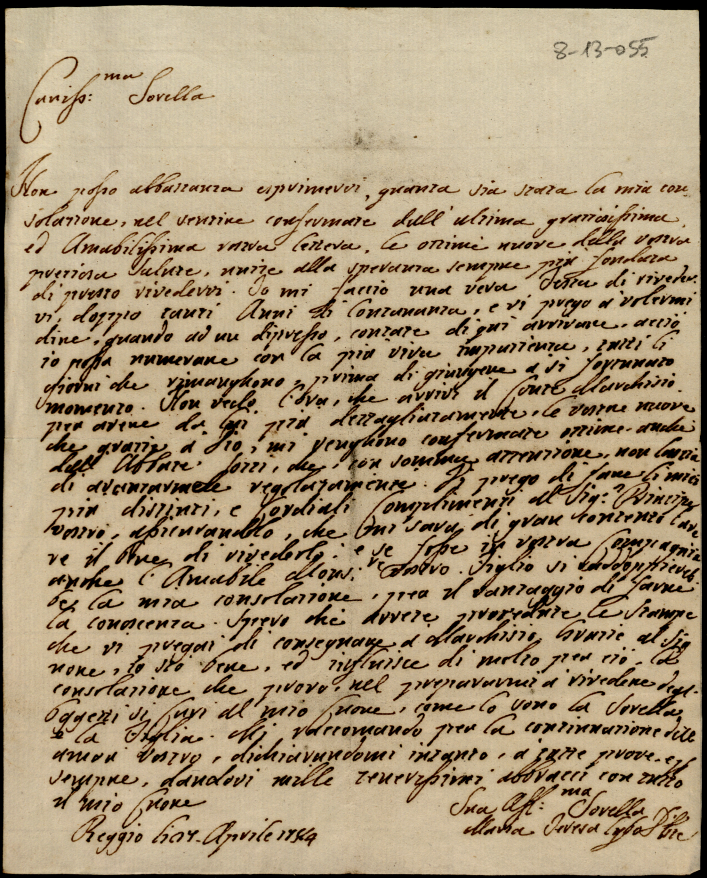 8-13-055
Cariss:ma Sorella
Non posso abbastanza esprimervi, quanta sia stata la mia con
solatione, nel sentire confermate dall' ultima gratiosissima,
ed Amabilissima vostra lettera, le ottime nuove della vostra
pretiosa Salute, unite alla speranza sempre più fondata
di presto rivedervi. Io mi faccio una vera festa di riveder
vi, doppo tanti Anni di Lontananza, e vi prego a volermi
dire, quando ad un dipresso, contate di qui arrivare, acciò
io possa numerare con la più viva impatienza, tutti li
giorni che rimanghono, prima di giungere a si fortunato
momento. Non vedo l'ora, che arrivi il Conte Marchisio
per avere da lui più dettagliatamente, le vostre nuove
che gratie a Dio, mi venghono confermate ottime anche
dall' Abbate che, con somma attenzione, non lascia
di regolatamente. Vi prego di fare li miei
più distinti, e Cordiali Complimenti al Sig: Principe
Vostro, assicurandolo, che mi sarà di gran contento l'ave
re il bene di rivederlo: e se fosse in vostra Compagnia
anche l' Amabile Mons: Vostro Figlio si raddoppiereb
be la mia consolatione, per il vantaggio di farne
la conoscenza. Spero che avrete procedute le Stampe
che vi pregai di consegnare a Marchisio, Gratie al Sig
nore, io stò bene, ed influisce di molto per ciò, la
consolatione che provo, nel prepararmi a rivedere degl'
Oggetti si Cari al mio Cuore, come lo sono la Sorella,
e la Figlia. Mi raccomando per la continuatione dell'
amor vostro, dichiarandomi intanto, a tutte prove, e
sempre, dandovi mille tenerissimi abbracci con tutto
il mio Cuore
Sua Aff:ma Sorella
Reggio li 17. Aprile 1784
Maria Teresa Cybo d'Este